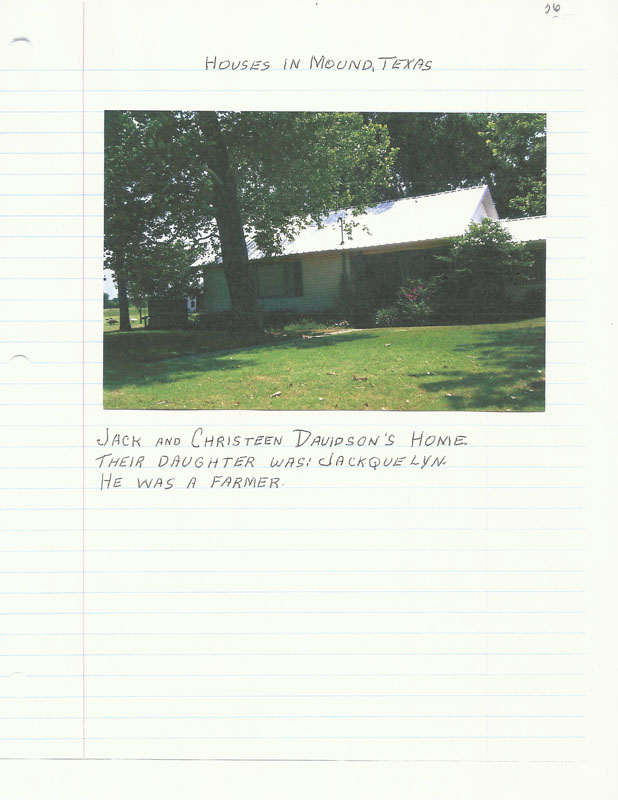 26
HOUSES IN MOUND, TEXAS
JACK AND CHRISTEEN DAVIDSON'S HOME.
THEIR DAUGHTER WAS: JACKQUELYN.
HE WAS A FARMER.